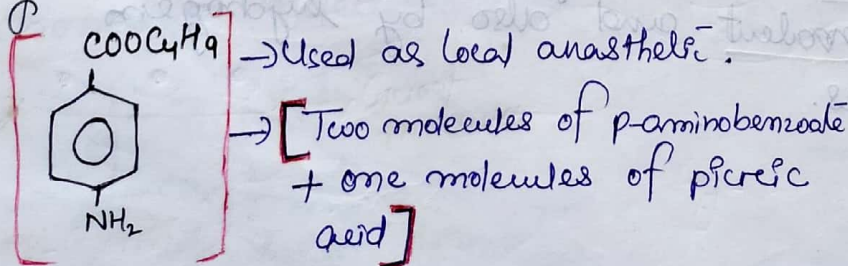 COOC4H9 → Used as local anasthetic.
→ [Two molecules of p-aminobenzoate
+ one molecules of picreic
acid]
NH2